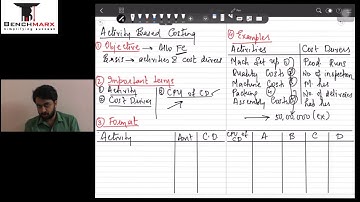 BENCHMARX
Activity Based Costing
① Objective → Allo FC
Basis → activities & cost drivers
② Important terms
① Activity
② Cost Driver
③ CPU of CD
③ Format
④ Examples
Activities Cost Drivers
Mach Set up Prod Runs
Quality Costs No of inspection
Machine Costs M hrs
Packing No of deliveries
Assembly Costs Lab hrs
→ 50,00,000 (ex)
Activity Amt C.D CPU of CD A B C D